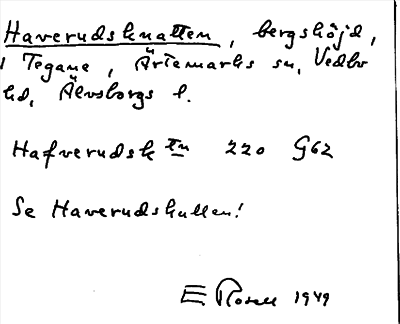 Haverudsknatten, bergshöjd,
i Tegane, Ärtemarks sn, Vedbo
hd, Älvsborgs l.
Hafverudsk tn 220 G62
Se Haverudskullen!
E. Rosell 1949